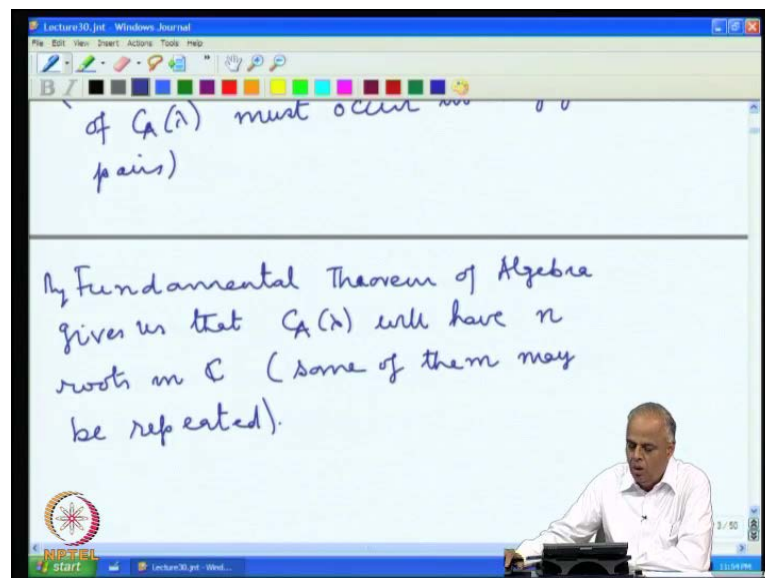 Lecture30.jnt - Windows Journal
File Edit View Insert Actions Tools Help
B I
of C_A(λ) must occur
pairs)
By Fundamental Theorem of Algebra
gives us that C_A(λ) will have n
roots in ℂ (some of them may
be repeated).
3 / 50
NPTEL
start Lecture30.jnt - Wind... 11:54 PM